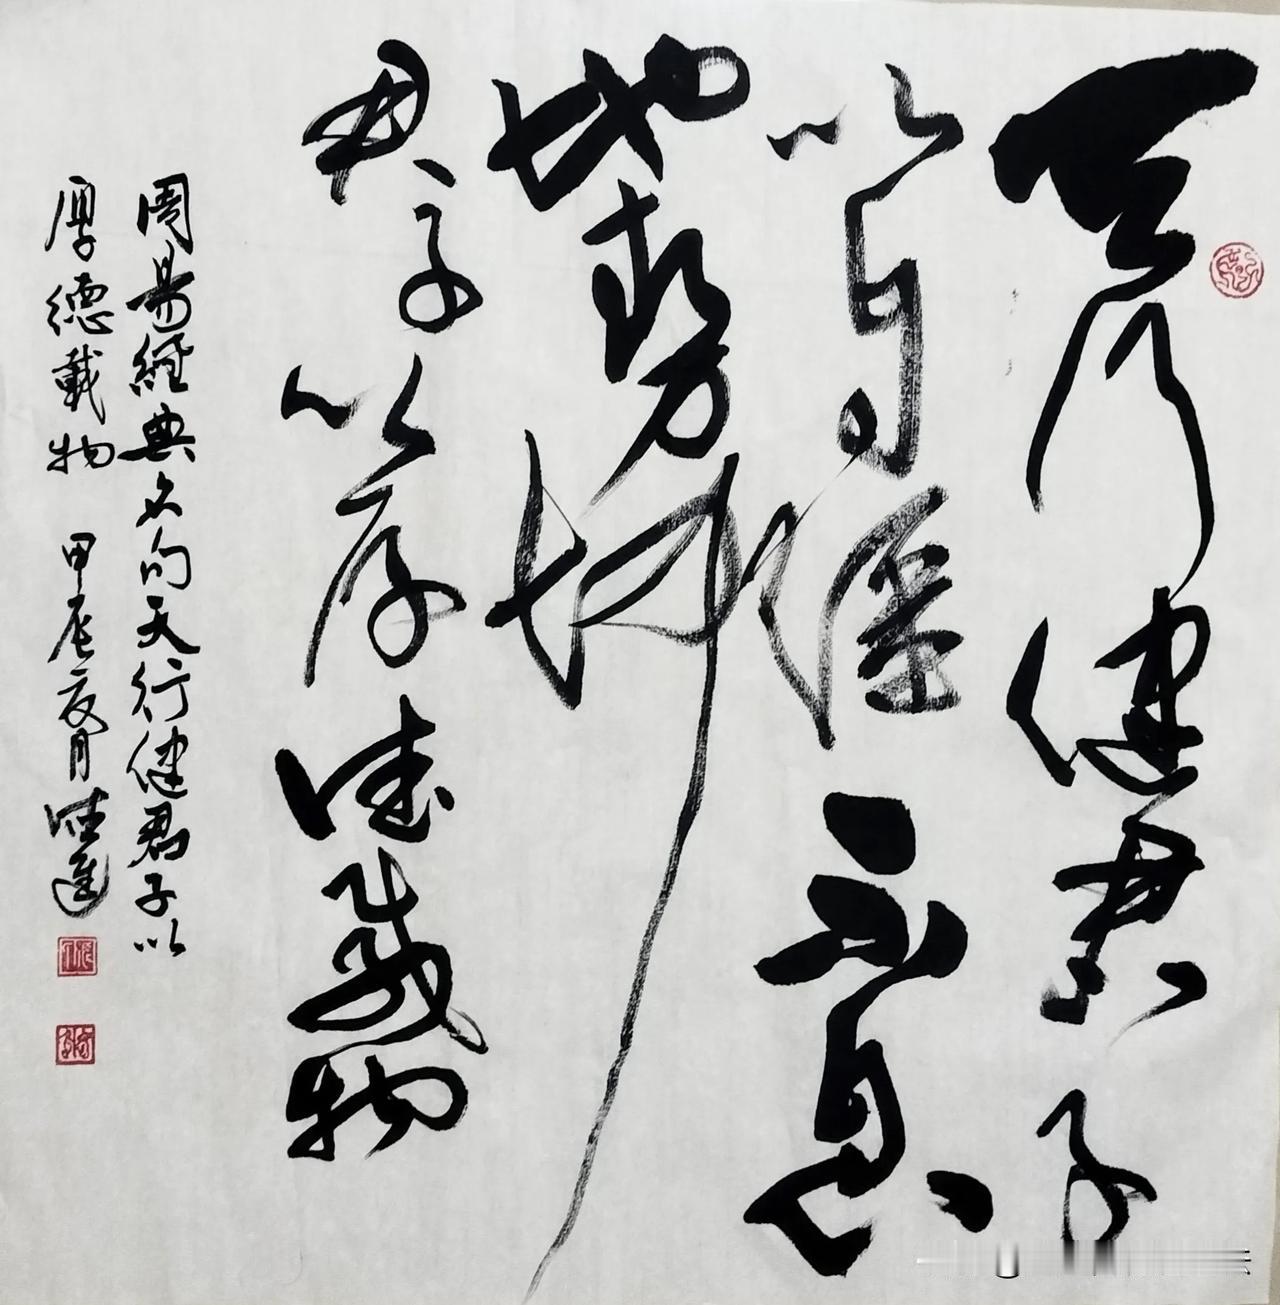 天行健君子
以自彊不息
地勢坤
君子以厚德載物
周易經典名句天行健君子以
厚德載物 甲辰夏月